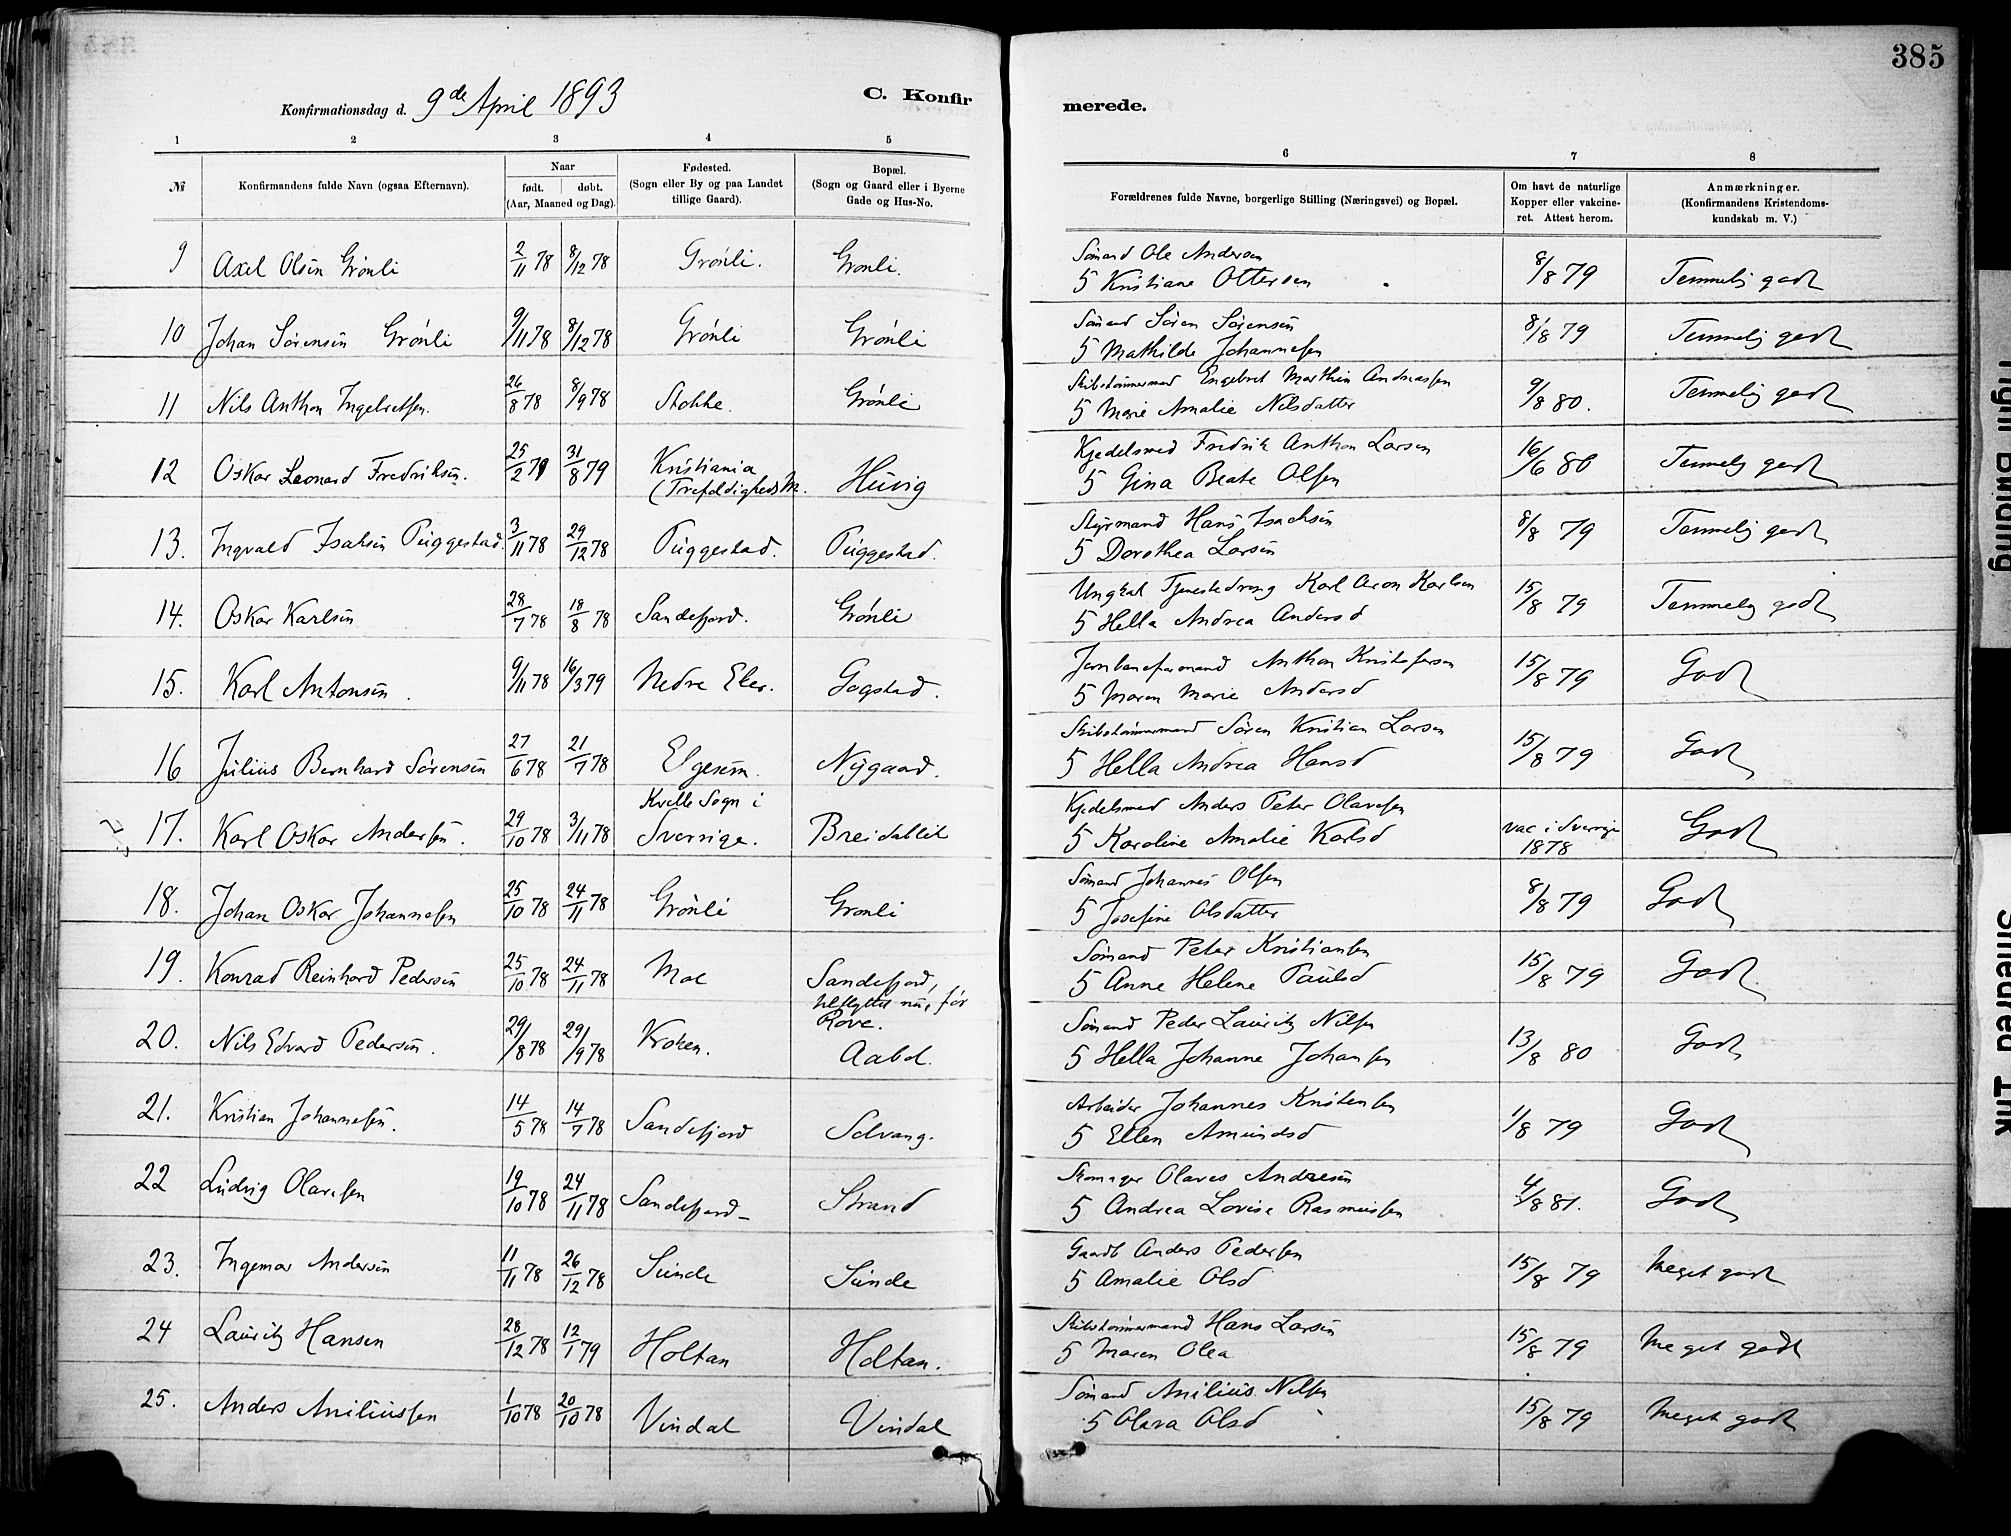 385
Konfirmationsdag d. 9de April 1893
C. Konfirmerede.
1 2 3 4 5 6 7 8
№
Konfirmandens fulde Navn (ogsaa Efternavn).
Naar
født. døbt.
(Aar, Maaned og Dag).
Fødested.
(Sogn eller By og paa Landet
tillige Gaard).
Bopæl.
(Sogn og Gaard eller i Byerne
Gade og Hus-No.
Forældrenes fulde Navne, borgerlige Stilling (Næringsvei) og Bopæl.
Om havt de naturlige
Kopper eller vakcine-
ret. Attest herom.
Anmærkninger.
(Konfirmandens Kristendoms-
kundskab m. V.)
9 Axel Olsen Grönli 2/11 78 8/12 78 Grönli. Grönli. Sömand Ole Andersen
5 Kristiane Ottersen 8/8 79 Temmelig godt
10 Johan Sörensen Grönli 9/11 78 8/12 78 Grönli Grönli Sömand Sören Sörensen
5 Mathilde Johannesen 8/8 79 Temmelig godt
11 Nils Anthon Ingebretsen. 26/8 78 8/9 78 Stokke. Grönli Skibstömmermand Engebret Marthin Andreassen
5 Marie Amalie Nilsdatter 9/8 80. Temmelig godt
12 Oskar Leonard Fredriksen. 25/2 79 31/8 79 Kristiania
(Trefoldigheds M. Huvig Kjedelsmed Fredrik Anthon Larsen
5 Gina Beate Olsen 16/6 80 Temmelig godt
13. Ingvald Isaksen Puggestad. 3/11 78 29/12 78 Puggestad. Puggestad. Styrmand Hans Isachsen
5 Dorothea Larsen 8/8 79 Temmelig godt
14. Oskar Karlsen 28/7 78 18/8 78 Sandefjord. Grönli Ungkal Tjenestedreng Karl Aron Karlsen
5 Hella Andrea Andersd 15/8 79 Temmelig godt
15. Karl Antonsen. 9/11 78 16/3 79 Nedre Eker. Gogstad. Jernbaneformand Anthon Kristofersen
5 Maren Marie Andersd 15/8 79 Godt
16 Julius Bernhard Sörensen 27/6 78 21/7 78 Elgesem. Nygaard. Skibstömmermand Sören Kristian Larsen
5 Hella Andrea Hansd 15/8 79 Godt
17. Karl Oskar Andersen. 29/10 78 3/11 78 Kville Sogn i
Sverrige. Breidablik Kjedelsmed Anders Peter Olavesen
5 Karoline Amalie Karlsd vac i Sverrige
1878 Godt
18. Johan Oskar Johannesen 25/10 78 24/11 78 Grönli Grönli Sömand Johannes Olsen
5 Josefine Olsdatter 8/8 79 Godt
19. Konrad Reinhard Pedersen 25/10 78 24/11 78 Moe Sandefjord,
tilflyttet nu, för
Rove. Sömand Peter Kristiansen
5 Anne Helene Paulsd 15/8 79 Godt.
20. Nils Edvard Pedersen. 29/8 78 29/9 78 Kroken. Aabol. Sömand Peder Lauritz Nilsen
5 Hella Johanne Johansen 13/8 80 Godt
21. Kristian Johannesen. 14/5 78 14/7 78 Sandefjord Solvang. Arbeider Johannes Kristensen
5 Ellen Amundsd 1/8 79 Godt
22 Ludvig Olavesen 19/10 78 24/11 78 Sandefjord Strand Skomager Olaves Andresen
5 Andrea Lovise Rasmussen 4/8 81. Godt
23. Ingemar Andersen 11/11 78 26/12 78 Sunde Sunde Gaardb Anders Pedersen
5 Amalie Olsd 15/8 79 Meget godt
24 Lauritz Hansen 28/12 78 12/1 79 Holtan Holtan. Skibstömmermand Hans Larsen
5 Maren Olea 15/8 79 Meget godt
25. Anders Aniliussen 1/10 78 20/10 78 Vindal Vindal Sömand Anilius Nilsen
5 Olava Olsd 15/8 79 Meget godt
Tight Binding
Smeared Ink